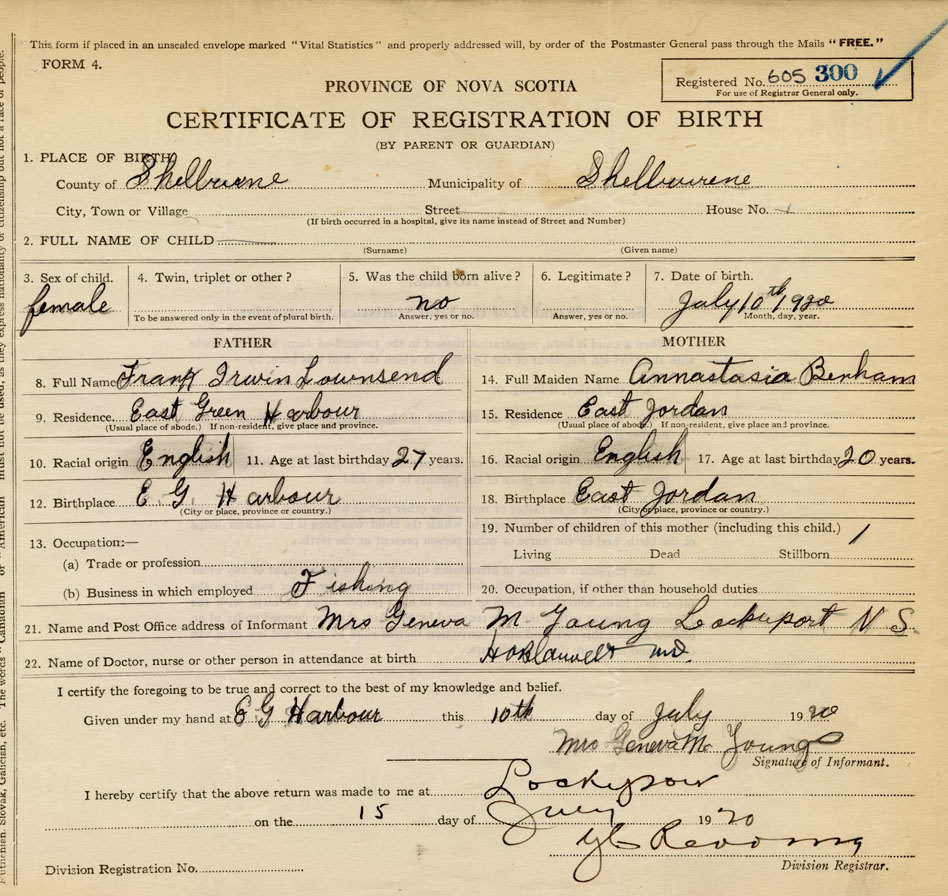 This form if placed in an unsealed envelope marked "Vital Statistics" and properly addressed will, by order of the Postmaster General pass through the Mails "FREE."
FORM 4.
Registered No. 605 300
For use of Registrar General only.
PROVINCE OF NOVA SCOTIA
CERTIFICATE OF REGISTRATION OF BIRTH
(BY PARENT OR GUARDIAN)
1. PLACE OF BIRTH
County of Shelburne Municipality of Shelbourne
City, Town or Village Street House No.
(If birth occurred in a hospital, give its name instead of Street and Number)
2. FULL NAME OF CHILD
(Surname) (Given name)
3. Sex of child. 4. Twin, triplet or other? 5. Was the child born alive? 6. Legitimate? 7. Date of birth.
female no July 10th 1920
To be answered only in the event of plural birth. Answer, yes or no. Answer, yes or no. Month, day, year.
FATHER MOTHER
8. Full Name Frank Irwin Townsend 14. Full Maiden Name Annastasia Benham
9. Residence. East Green Harbour 15. Residence East Jordan
(Usual place of abode.) If non-resident, give place and province. (Usual place of abode.) If non-resident, give place and province.
10. Racial origin English 11. Age at last birthday 27 years. 16. Racial origin English 17. Age at last birthday 20 years.
12. Birthplace E. G. Harbour 18. Birthplace East Jordan
(City or place, province or country.) (City or place, province or country.)
19. Number of children of this mother (including this child.) 1
13. Occupation:—
Living Dead Stillborn
(a) Trade or profession
(b) Business in which employed Fishing 20. Occupation, if other than household duties
21. Name and Post Office address of Informant Mrs Geneva M Young Lockeport N S.
22. Name of Doctor, nurse or other person in attendance at birth MD.
I certify the foregoing to be true and correct to the best of my knowledge and belief.
Given under my hand at E G Harbour this 10th day of July 1920
Mrs Geneva M. Young
Signature of Informant.
I hereby certify that the above return was made to me at Lockeport
on the 15 day of July 1920
Division Registration No. Division Registrar.